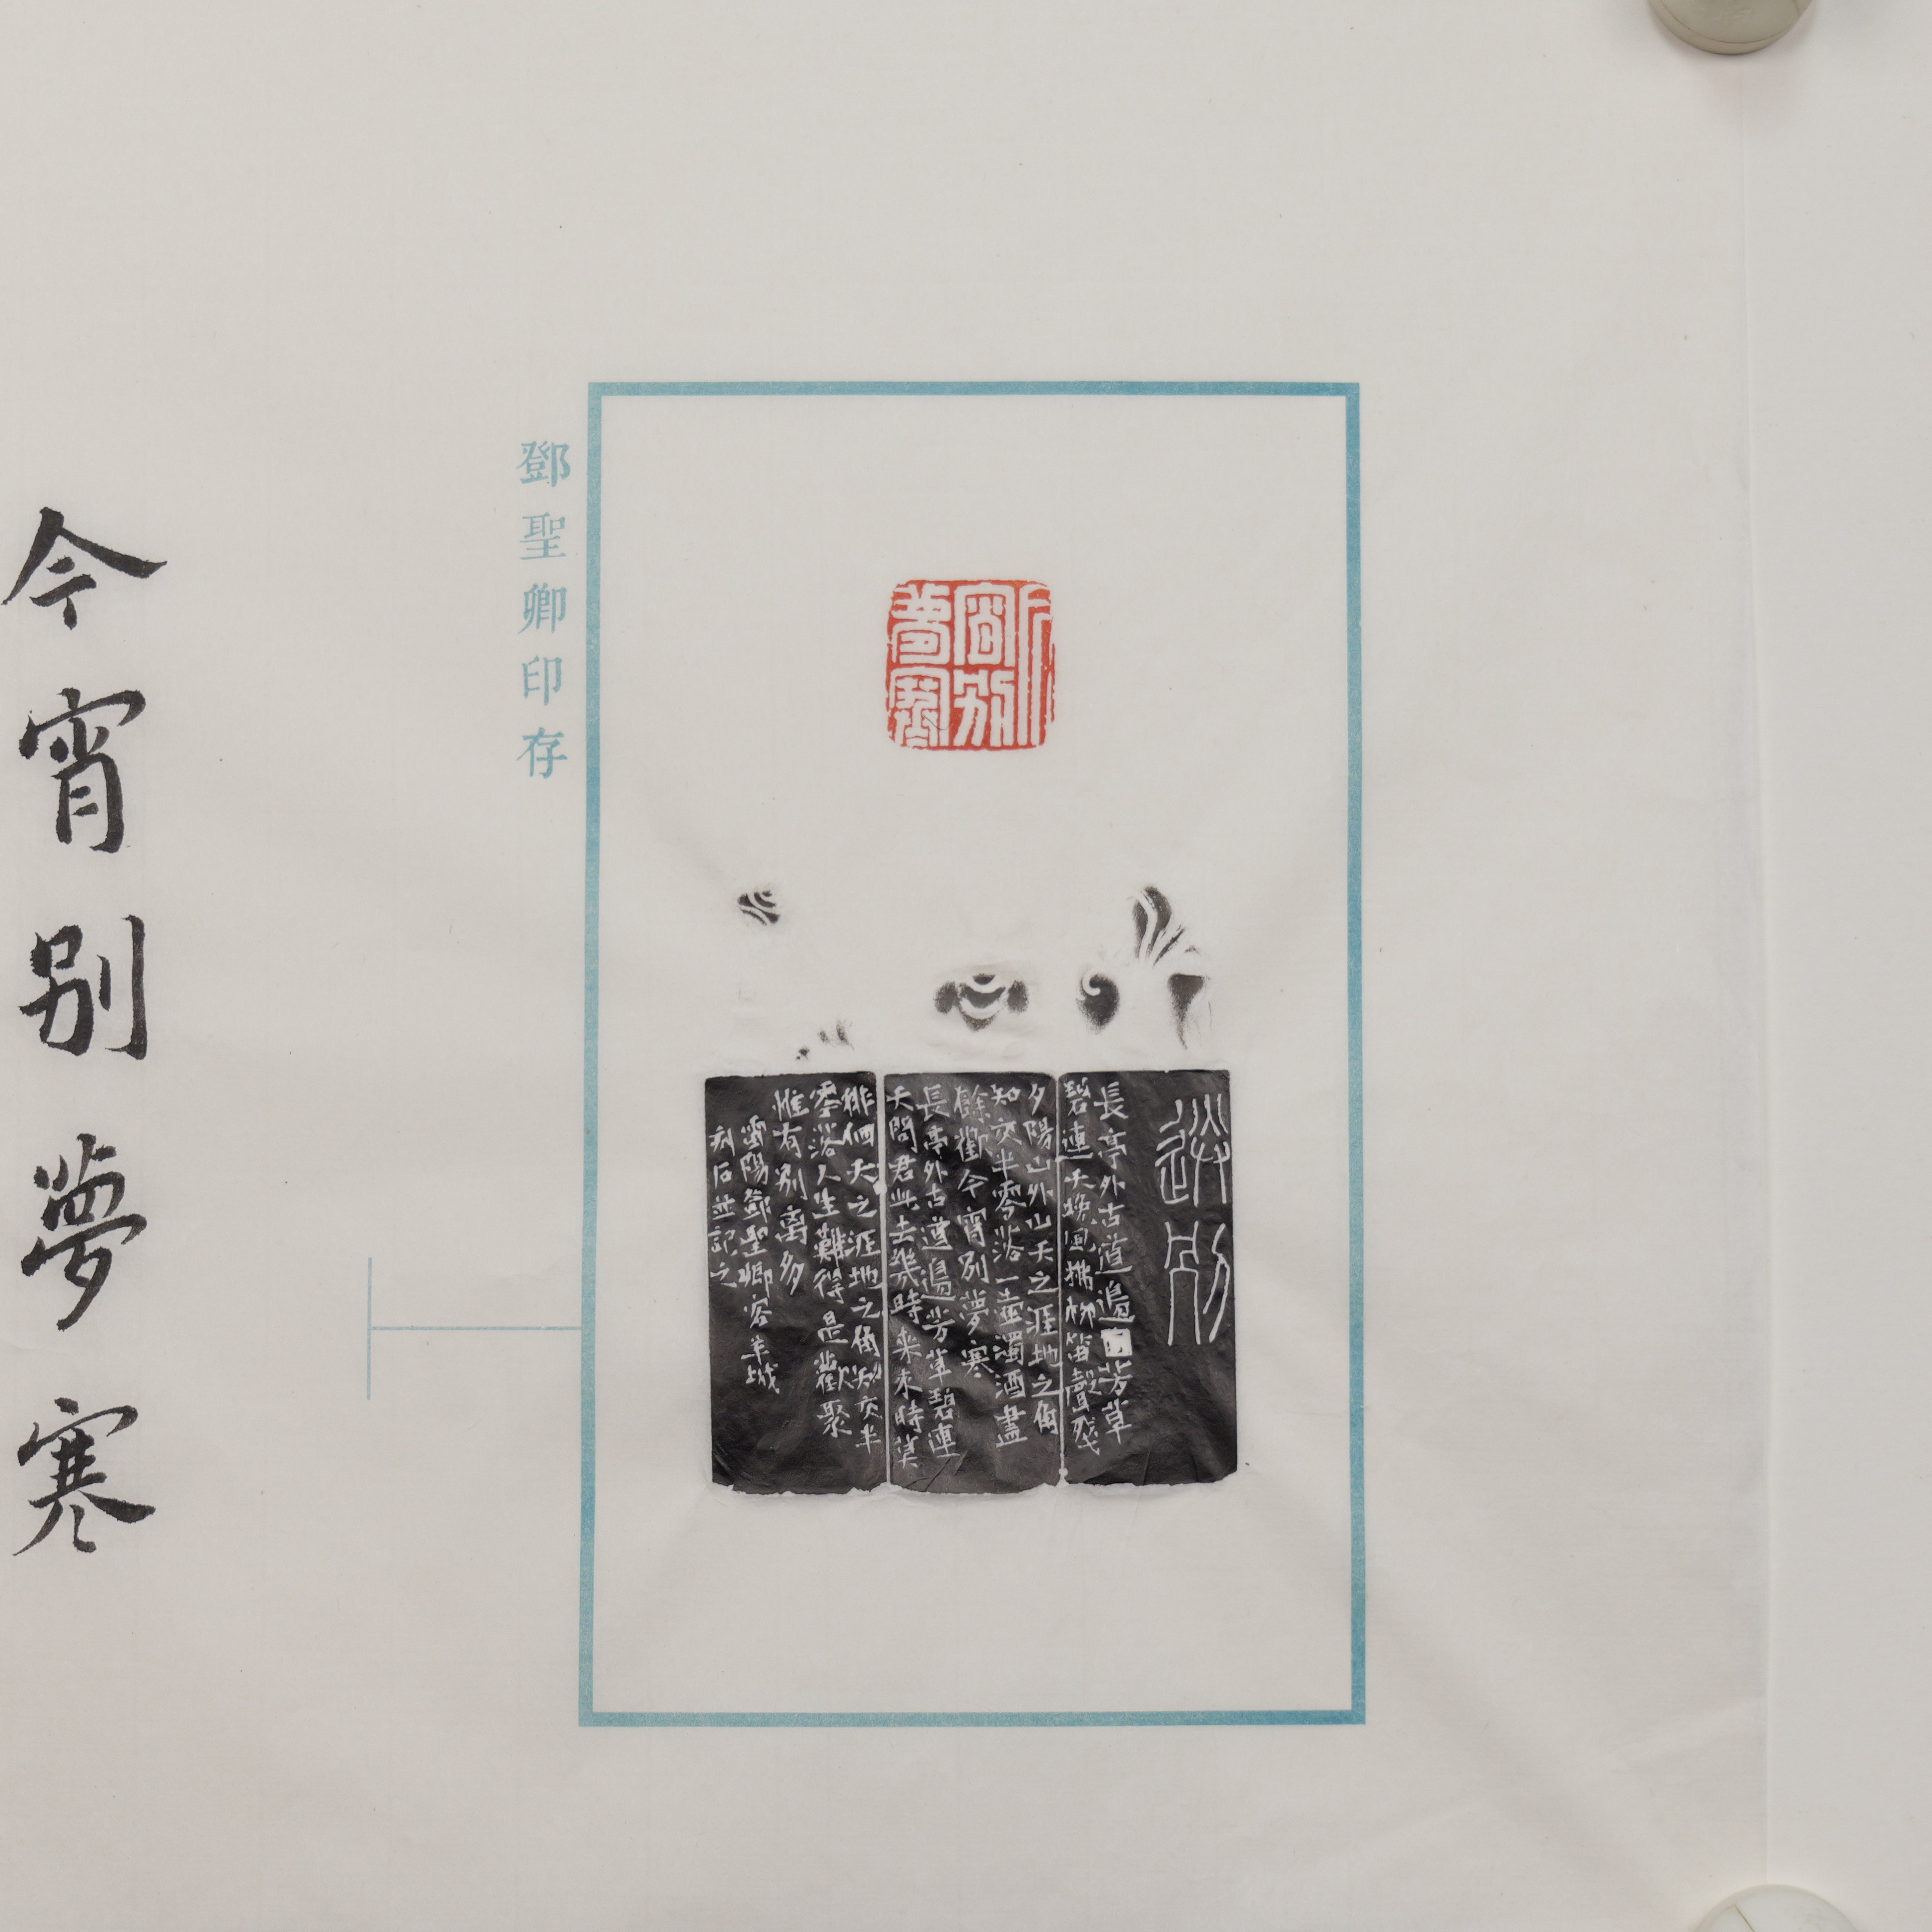 今宵別夢寒
送別
長亭外古道邊芳草
碧連天晚風拂柳笛聲殘
夕陽山外山天之涯地之角
知交半零落一壺濁酒盡
餘歡今宵別夢寒
長亭外古道邊芳草碧連
天問君此去幾時來來時莫
徘徊天之涯地之角知交半
零落人生難得是歡聚
惟有別離多
陽鄧聖卿客羊城
刻石並記之
鄧聖卿印存
今宵别夢寒